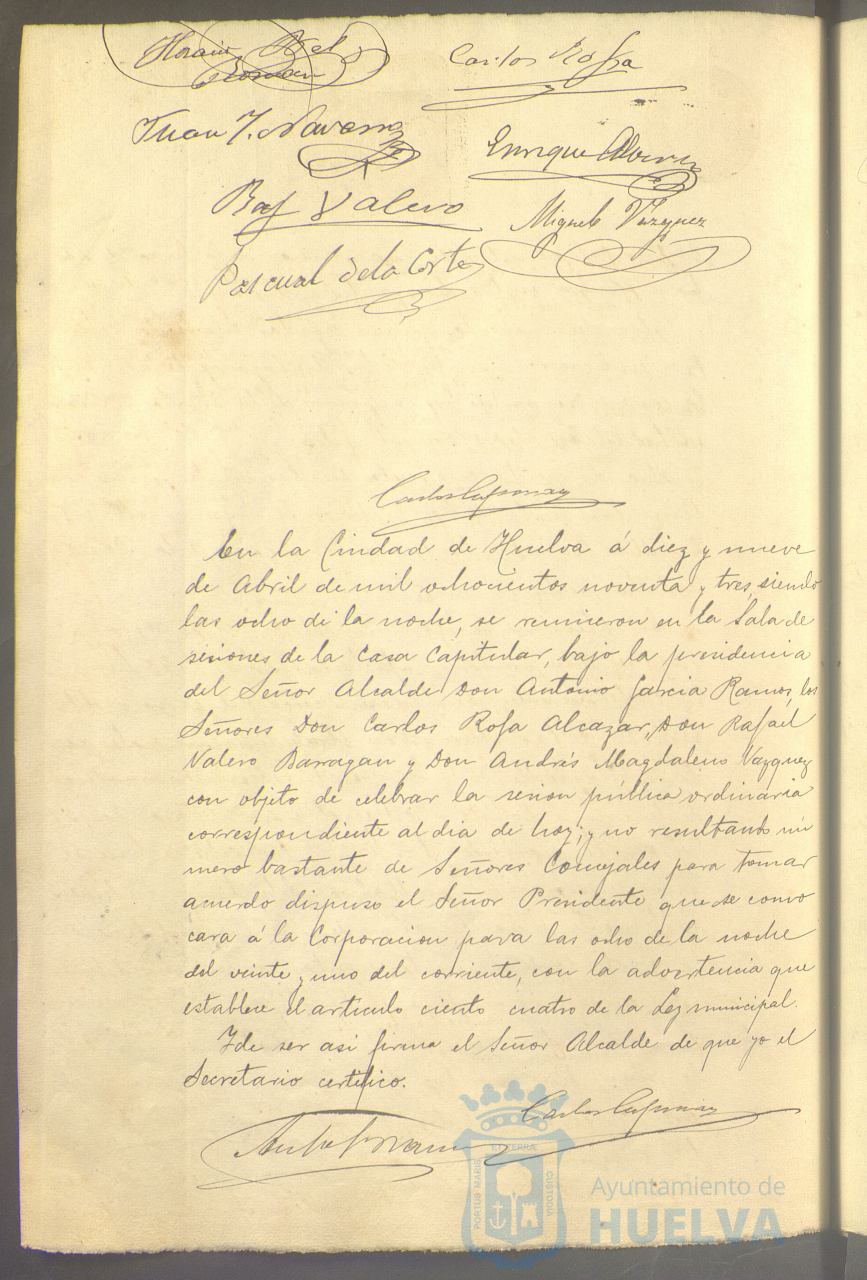 Horacio Bel
Roman
Carlos Rofa
Juan J. Navarro
Enrique
Raf Valero
Miguel Vazquez
Pascual de la Corte
Carlos
En la Ciudad de Huelva á diez y nueve
de Abril de mil ochocientos noventa y tres, siendo
las ocho de la noche, se reunieron en la Sala de
sesiones de la Casa Capitular, bajo la presidencia
del Señor Alcalde Don Antonio Garcia Ramos, los
Señores Don Carlos Rofa Alcazar, Don Rafael
Valero Barragan y Don Andrés Magdaleno Vazquez
con objeto de celebrar la sesion pública ordinaria
correspondiente al dia de hoy; y no resultando nú
mero bastante de Señores Concejales para tomar
acuerdo dispuso el Señor Presidente que se convo
cara á la Corporacion para las ocho de la noche
del veinte y uno del corriente, con la advertencia que
establece el articulo ciento cuatro de la Ley municipal.
Y de ser asi firma el Señor Alcalde de que yo el
Secretario certifico.
Carlos
PORTUS MARIS
ET TERRÆ
CUSTODIA
Ayuntamiento de
HUELVA